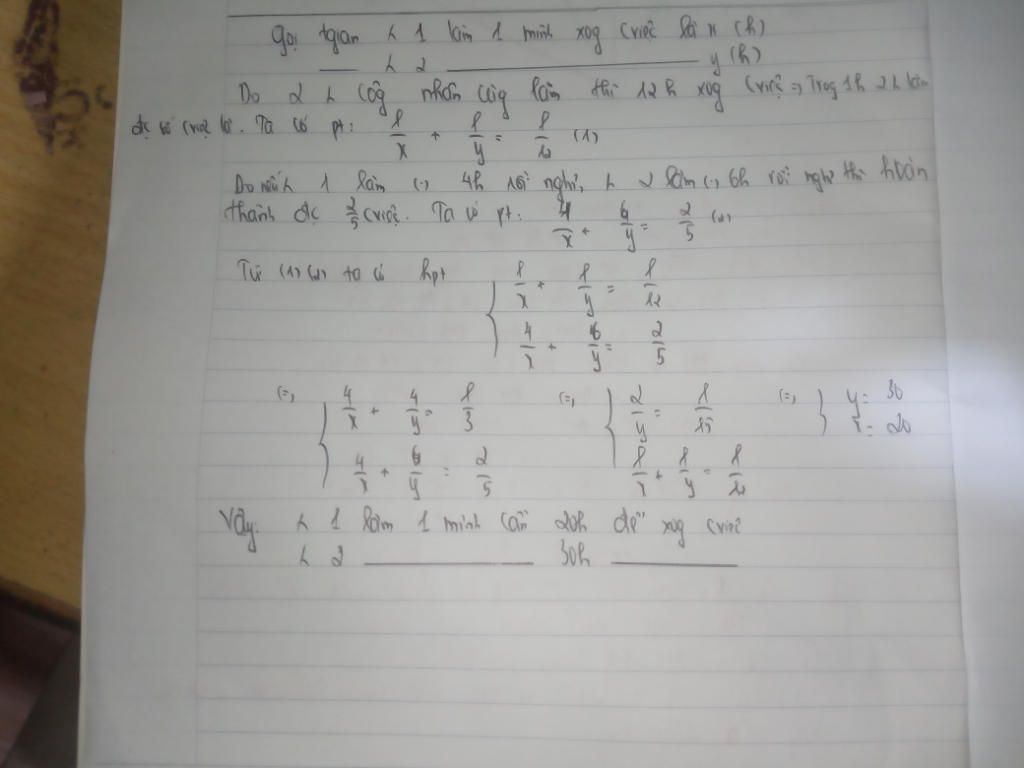 Gọi tgian L 1 làm 1 mình xog cviệc là x (h)
___ L 2 ___ y (h)
Do 2 L côg nhân cùg làm thì 12h xog cviệc => Trog 1h 2 L làm
đc số cviệc là. Ta có pt: 1/x + 1/y = 1/12 (1)
Do nếu L 1 làm (.) 4h rồi nghỉ, L 2 làm (.) 6h rồi nghỉ thì hoàn
thành đc 2/5 cviệc. Ta có pt: 4/x + 6/y = 2/5 (2)
Từ (1) (2) ta có hpt { 1/x + 1/y = 1/12
4/x + 6/y = 2/5
(=) { 4/x + 4/y = 1/3 (=) { 2/y = 1/15 (=) } y = 30
x = 20
4/x + 6/y = 2/5 1/x + 1/y = 1/12
Vậy L 1 làm 1 mình cần 20h để xog cviệc
L 2 ___ 30h ___